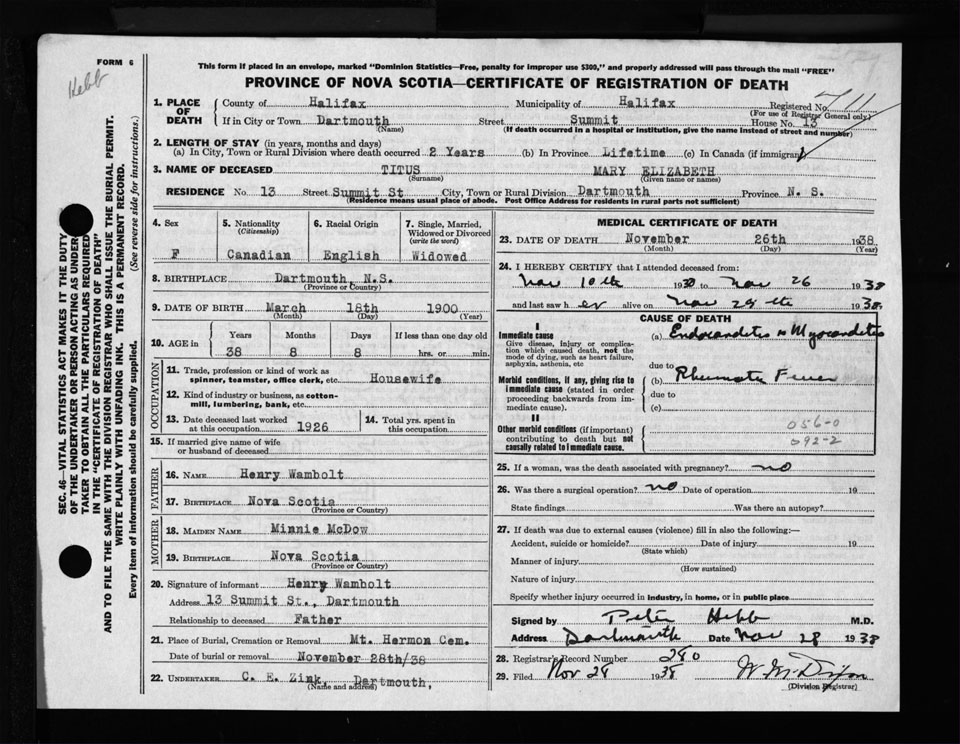 FORM 6
Hebb
This form if placed in an envelope, marked "Dominion Statistics—Free, penalty for improper use $300," and properly addressed will pass through the mail "FREE"
PROVINCE OF NOVA SCOTIA—CERTIFICATE OF REGISTRATION OF DEATH
SEC. 46—VITAL STATISTICS ACT MAKES IT THE DUTY
OF THE UNDERTAKER OR PERSON ACTING AS UNDER-
TAKER TO OBTAIN ALL THE PARTICULARS REQUIRED
IN THE "CERTIFICATE OF REGISTRATION OF DEATH"
AND TO FILE THE SAME WITH THE DIVISION REGISTRAR WHO SHALL ISSUE THE BURIAL PERMIT.
WRITE PLAINLY WITH UNFADING INK. THIS IS A PERMANENT RECORD.
Every item of information should be carefully supplied. (See reverse side for instructions.)
1. PLACE OF DEATH
County of Halifax Municipality of Halifax Registered No.
(For use of Registrar General only)
If in City or Town Dartmouth Street Summit House No. 13
(Name) (If death occurred in a hospital or institution, give the name instead of street and number)
2. LENGTH OF STAY (in years, months and days)
(a) In City, Town or Rural Division where death occurred 2 Years (b) In Province Lifetime (c) In Canada (if immigrant)
3. NAME OF DECEASED TITUS MARY ELIZABETH
(Surname) (Given name or names)
RESIDENCE No. 13 Street Summit St City, Town or Rural Division Dartmouth Province N. S.
(Residence means usual place of abode. Post Office Address for residents in rural parts not sufficient)
4. Sex 5. Nationality (Citizenship) 6. Racial Origin 7. Single, Married, Widowed or Divorced (write the word)
F Canadian English Widowed
8. BIRTHPLACE Dartmouth, N.S.
(Province or Country)
9. DATE OF BIRTH March 18th 1900
(Month) (Day) (Year)
10. AGE in Years Months Days If less than one day old
38 8 8 hrs. or min.
OCCUPATION
11. Trade, profession or kind of work as
spinner, teamster, office clerk, etc. Housewife
12. Kind of industry or business, as cotton-
mill, lumbering, bank, etc.
13. Date deceased last worked at this occupation 1926 14. Total yrs. spent in this occupation
15. If married give name of wife
or husband of deceased
FATHER
16. NAME Henry Wambolt
17. BIRTHPLACE Nova Scotia
(Province or Country)
MOTHER
18. MAIDEN NAME Minnie McDow
19. BIRTHPLACE Nova Scotia
(Province or Country)
20. Signature of informant Henry Wambolt
Address 13 Summit St., Dartmouth
Relationship to deceased Father
21. Place of Burial, Cremation or Removal Mt. Hermon Cem.
Date of burial or removal November 28th/38
22. UNDERTAKER C. E. Zink, Dartmouth,
(Name and address)
MEDICAL CERTIFICATE OF DEATH
23. DATE OF DEATH November 26th 1938
(Month) (Day) (Year)
24. I HEREBY CERTIFY that I attended deceased from:
Nov 10th 19 to Nov 26 1938
and last saw her alive on Nov 1938
CAUSE OF DEATH
I
Immediate cause (a) Endocarditis Myocarditis
Give disease, injury or complica-
tion which caused death, not the
mode of dying, such as heart failure,
asphyxia, asthenia, etc due to
Morbid conditions, if any, giving rise to
immediate cause (stated in order
proceeding backwards from im-
mediate cause).
(b) Rheumatic Fever
due to
(c)
II
Other morbid conditions (if important)
contributing to death but not
causally related to immediate cause.
056-0
092-2
25. If a woman, was the death associated with pregnancy? no
26. Was there a surgical operation? no Date of operation 19
State findings Was there an autopsy?
27. If death was due to external causes (violence) fill in also the following:—
Accident, suicide or homicide? Date of injury 19
(State which)
Manner of injury
(How sustained)
Nature of injury
Specify whether injury occurred in industry, in home, or in public place
Signed by Peter Hebb M.D.
Address Dartmouth Date Nov 28 1938
28. Registrar's Record Number 280
29. Filed Nov 28 1938
(Division Registrar)